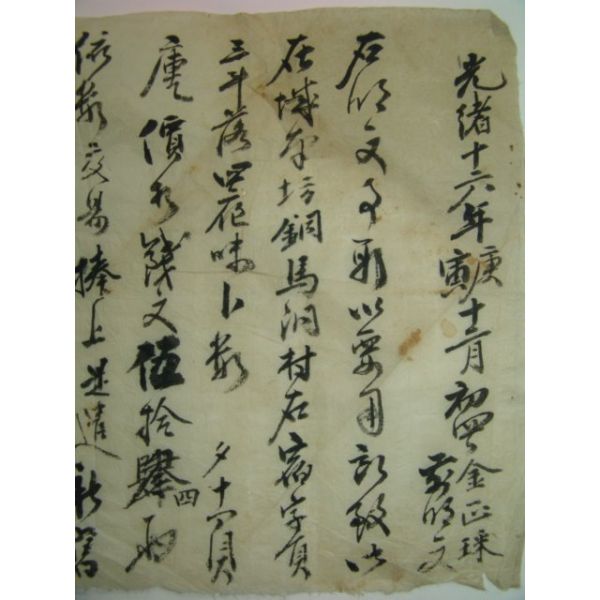 光緖十六年庚寅十二月初四日金正珠前明文
右明文事段以要用所致以
在城本坊銅馬洞村右宿字員
三斗落四夜味卜數夕十四負
庫價折錢文伍拾肆四兩
依數交易捧上是遣新舊